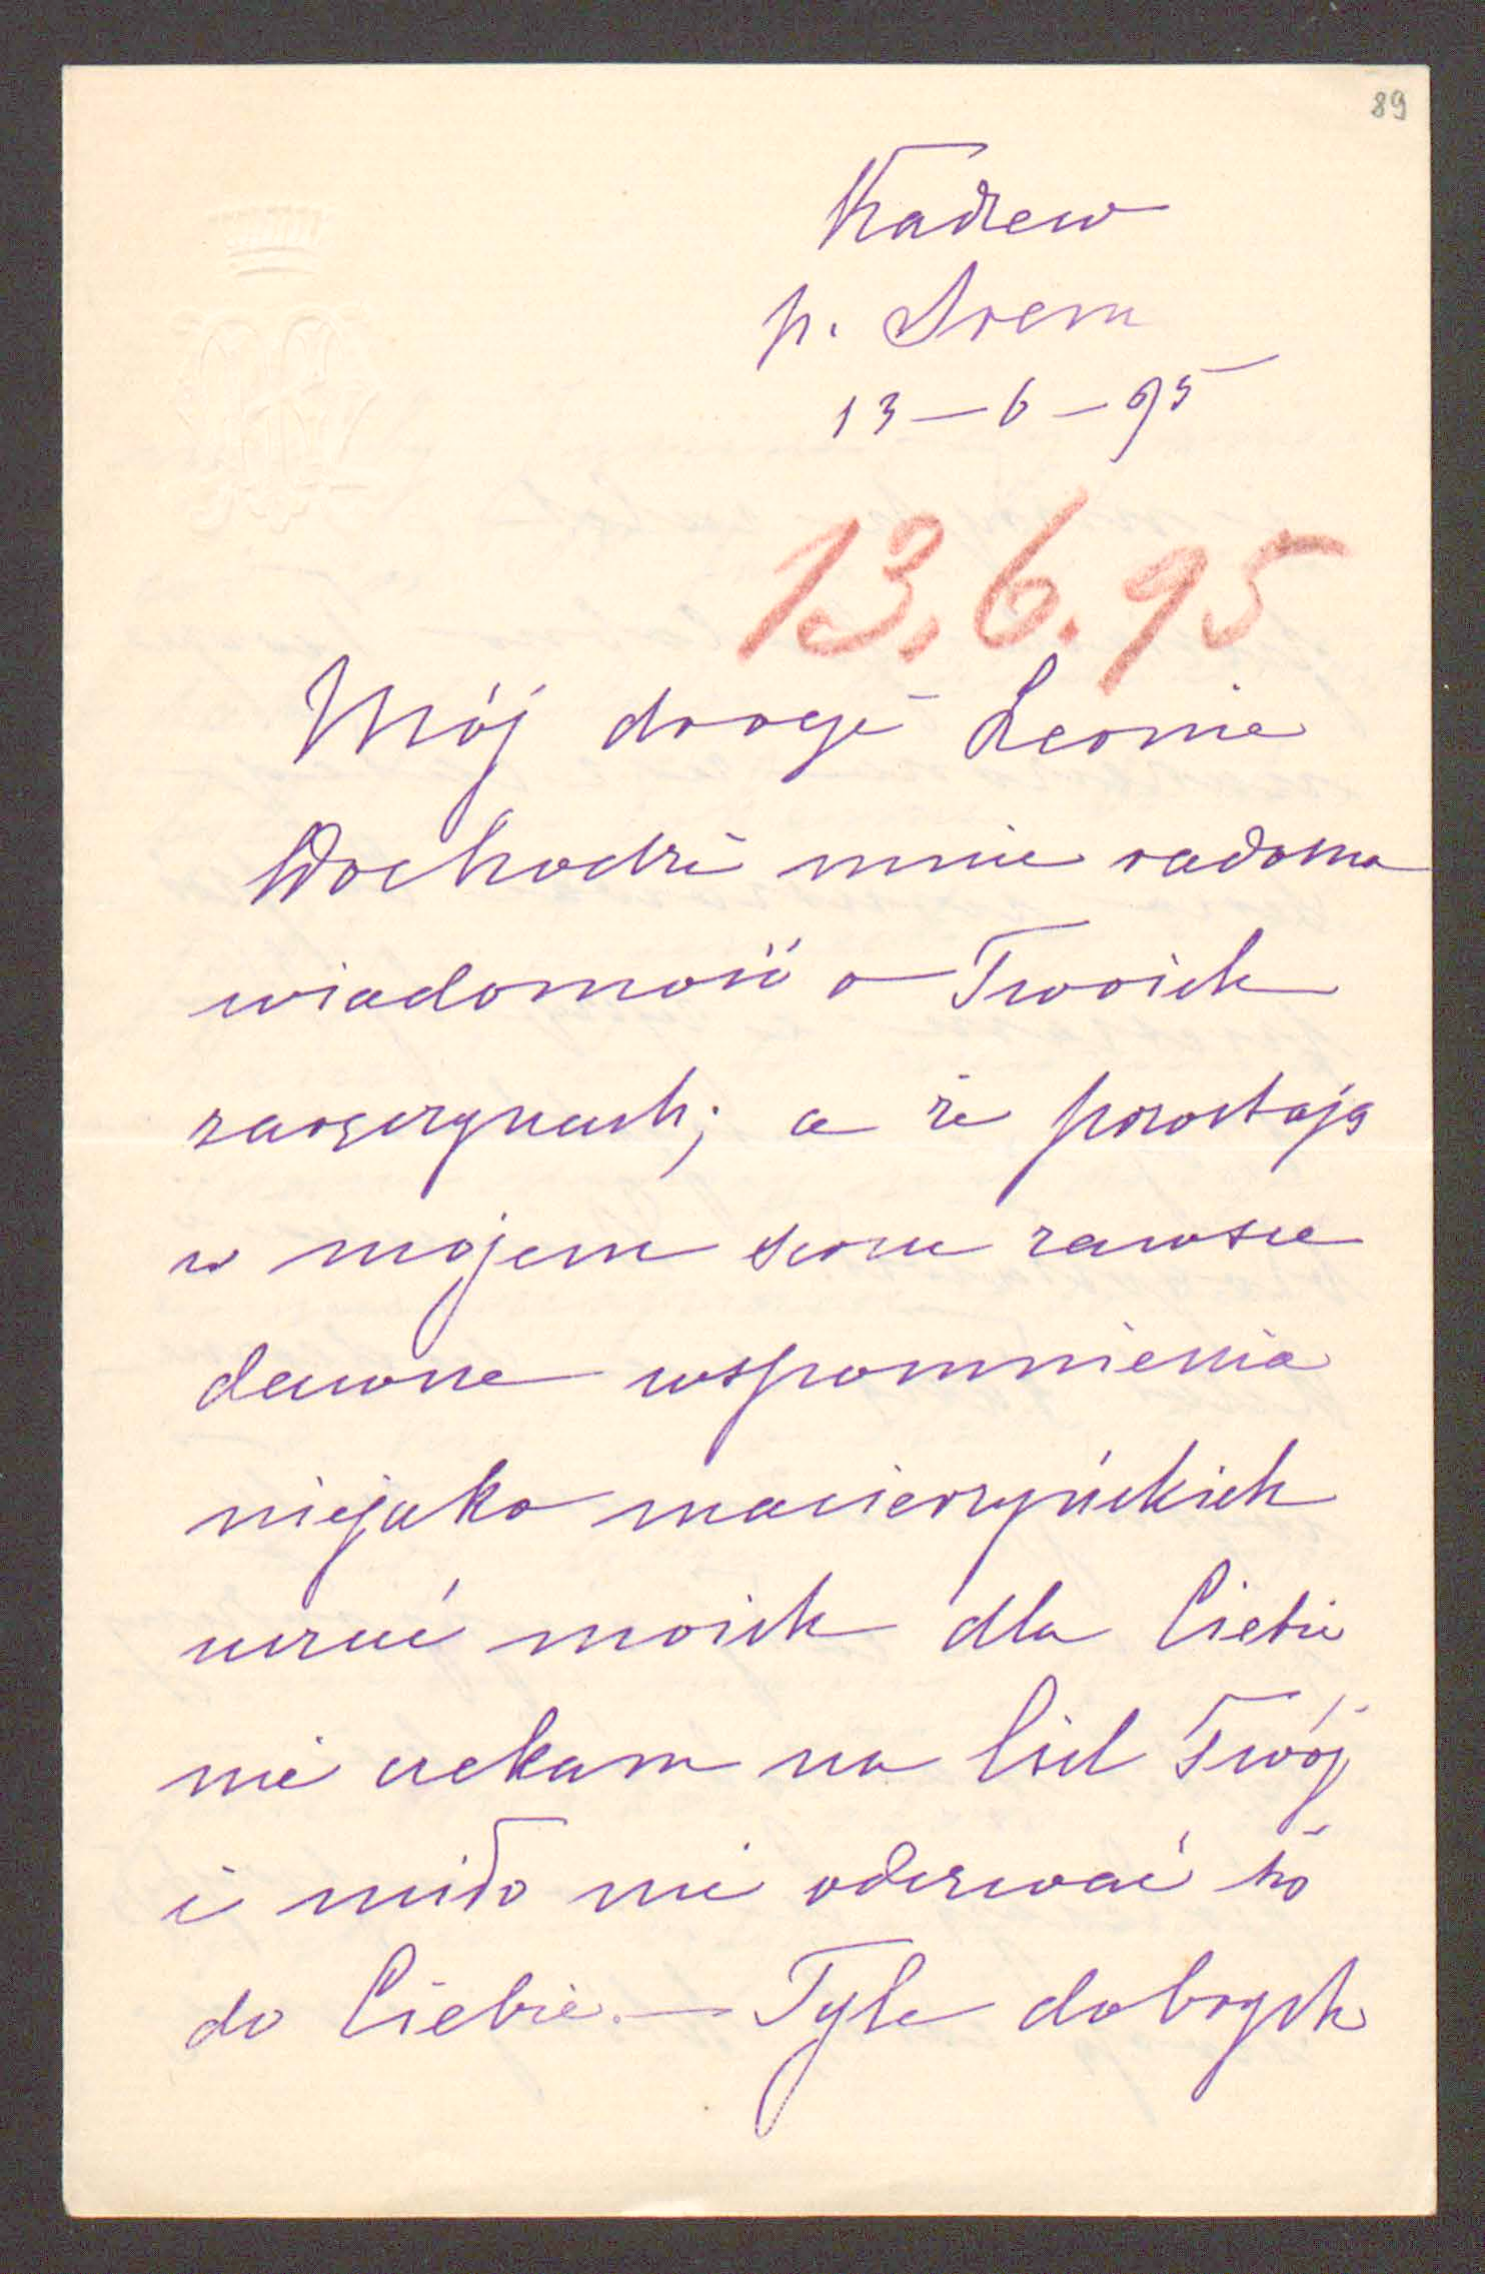 89
Kadzew
p. Śrem
13–6–95
13.6.95
Mój drogi Leonie
Dochodzi mnie radosna
wiadomość o Twoich
zaręczynach; a że pozostają
w mojem sercu zawsze
dawne wspomnienia
niejako macierzyńskich
uczuć moich dla Ciebie
nie czekam na list Twój
i miło mi odezwać się
do Ciebie. — Tyle dobrych